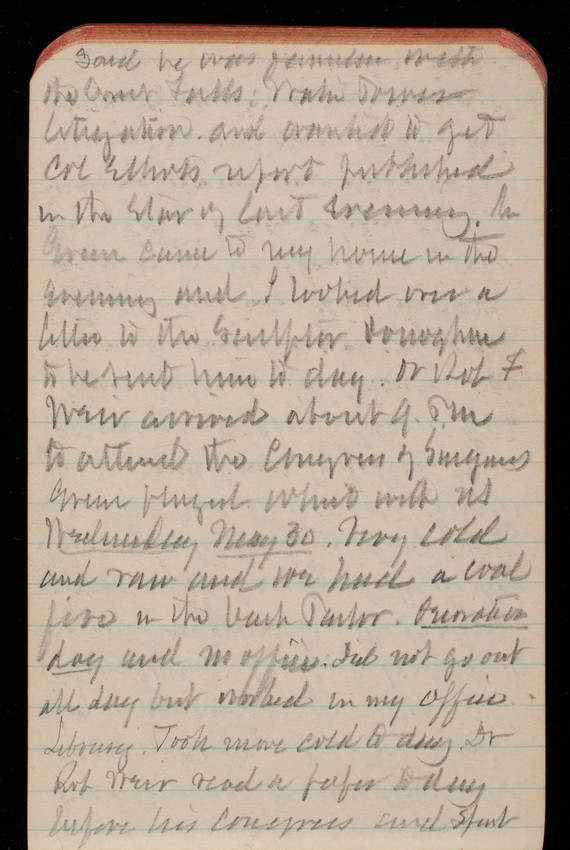 Said he was familiar with
the Great Falls. Water Power
litigation. and wanted to get
Col Elliots report published
in the Star of last evening. Mr
Green came to my home in the
evening and I looked over a
letter to the Sculptor. Donoghue
to be sent him to day. Dr Rob F.
Weir arrived about 9. P.M
to attend the Congress of Surgeons
Green played whist with us
Wednesday May 30. Very cold
and raw and we had a coal
fire in the back Parlor. Decoration
day and no office. Did not go out
all day but worked in my office
Library. Took more cold to day. Dr
Rob Weir read a paper to day
before his Congress and spent